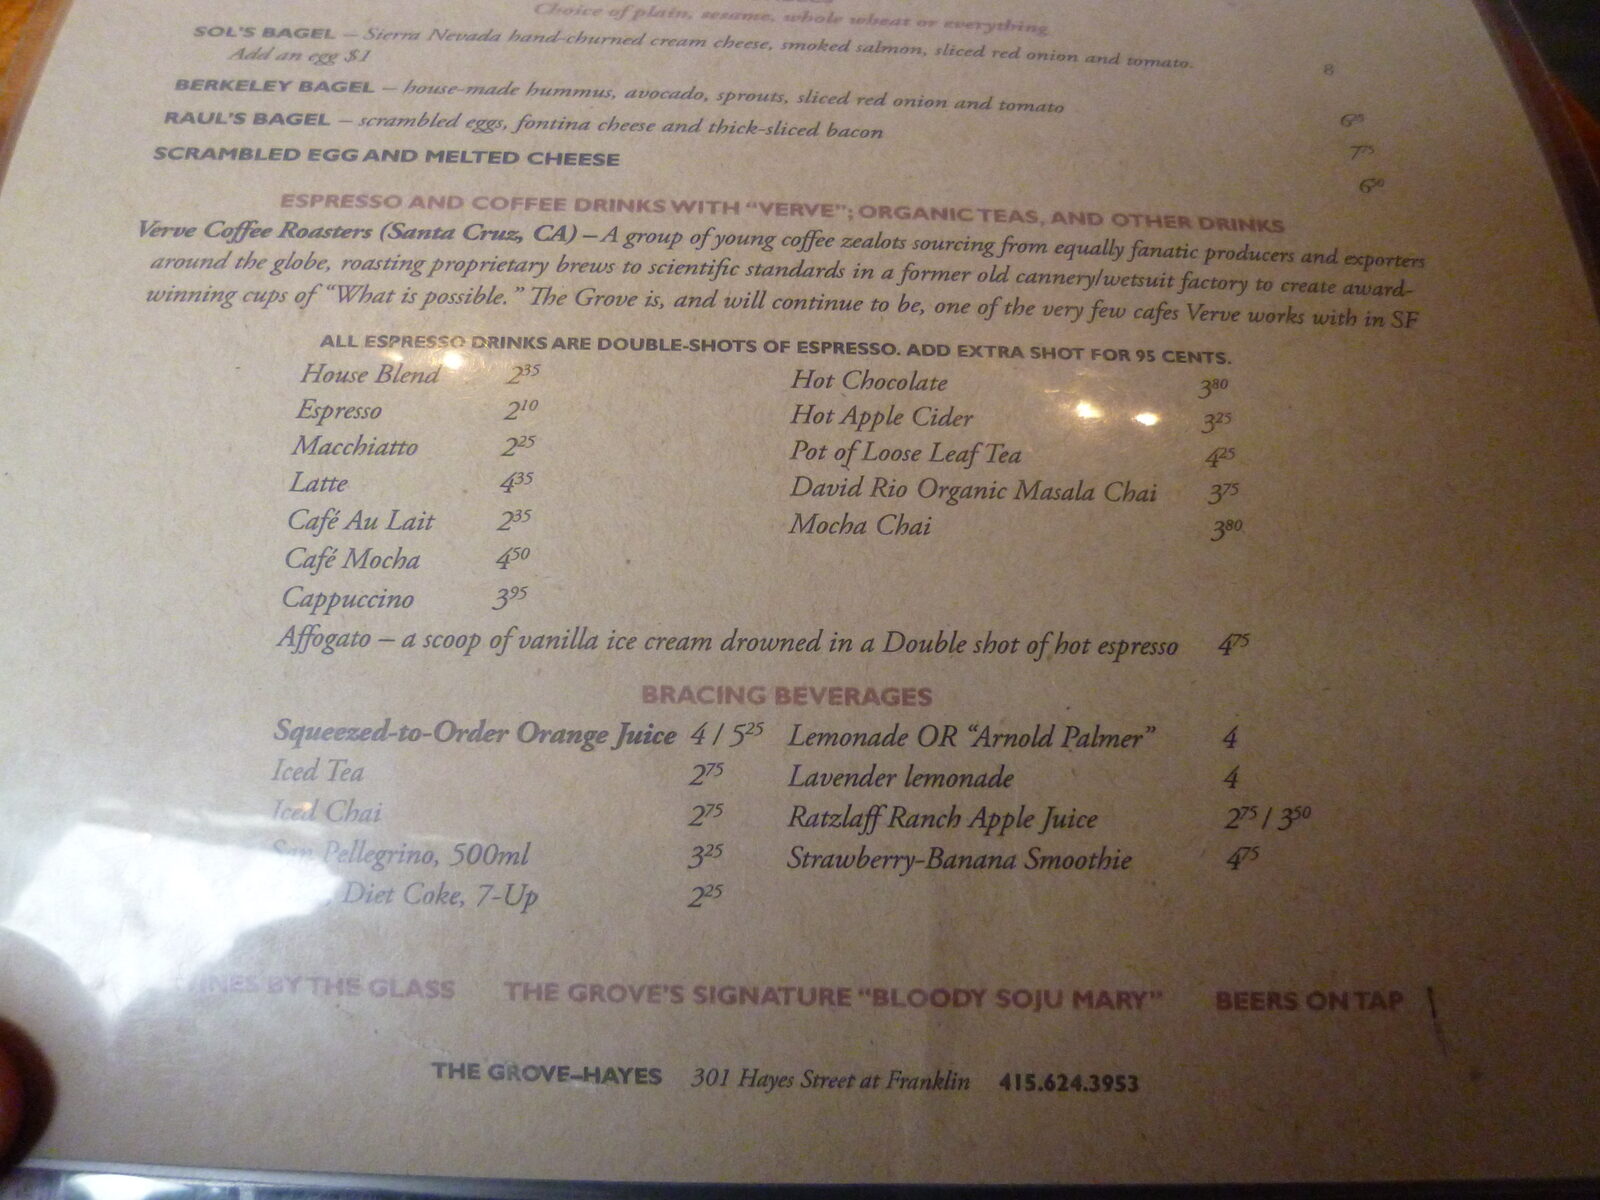 Choice of plain, sesame, whole wheat or everything
SOL'S BAGEL – Sierra Nevada hand-churned cream cheese, smoked salmon, sliced red onion and tomato. 8
Add an egg $1
BERKELEY BAGEL – house-made hummus, avocado, sprouts, sliced red onion and tomato 6²⁵
RAUL'S BAGEL – scrambled eggs, fontina cheese and thick-sliced bacon 7⁷⁵
SCRAMBLED EGG AND MELTED CHEESE 6⁵⁰
ESPRESSO AND COFFEE DRINKS WITH "VERVE"; ORGANIC TEAS, AND OTHER DRINKS
Verve Coffee Roasters (Santa Cruz, CA) – A group of young coffee zealots sourcing from equally fanatic producers and exporters
around the globe, roasting proprietary brews to scientific standards in a former old cannery/wetsuit factory to create award-
winning cups of "What is possible." The Grove is, and will continue to be, one of the very few cafes Verve works with in SF
ALL ESPRESSO DRINKS ARE DOUBLE-SHOTS OF ESPRESSO. ADD EXTRA SHOT FOR 95 CENTS.
House Blend 2³⁵
Espresso 2¹⁰
Macchiatto 2²⁵
Latte 4³⁵
Café Au Lait 2³⁵
Café Mocha 4⁵⁰
Cappuccino 3⁹⁵
Hot Chocolate 3⁸⁰
Hot Apple Cider 3²⁵
Pot of Loose Leaf Tea 4²⁵
David Rio Organic Masala Chai 3⁷⁵
Mocha Chai 3⁸⁰
Affogato – a scoop of vanilla ice cream drowned in a Double shot of hot espresso 4⁷⁵
BRACING BEVERAGES
Squeezed-to-Order Orange Juice 4 / 5²⁵
Iced Tea 2⁷⁵
Iced Chai 2⁷⁵
San Pellegrino, 500ml 3²⁵
, Diet Coke, 7-Up 2²⁵
Lemonade OR "Arnold Palmer" 4
Lavender lemonade 4
Ratzlaff Ranch Apple Juice 2⁷⁵ / 3⁵⁰
Strawberry-Banana Smoothie 4⁷⁵
WINES BY THE GLASS THE GROVE'S SIGNATURE "BLOODY SOJU MARY" BEERS ON TAP
THE GROVE–HAYES 301 Hayes Street at Franklin 415.624.3953